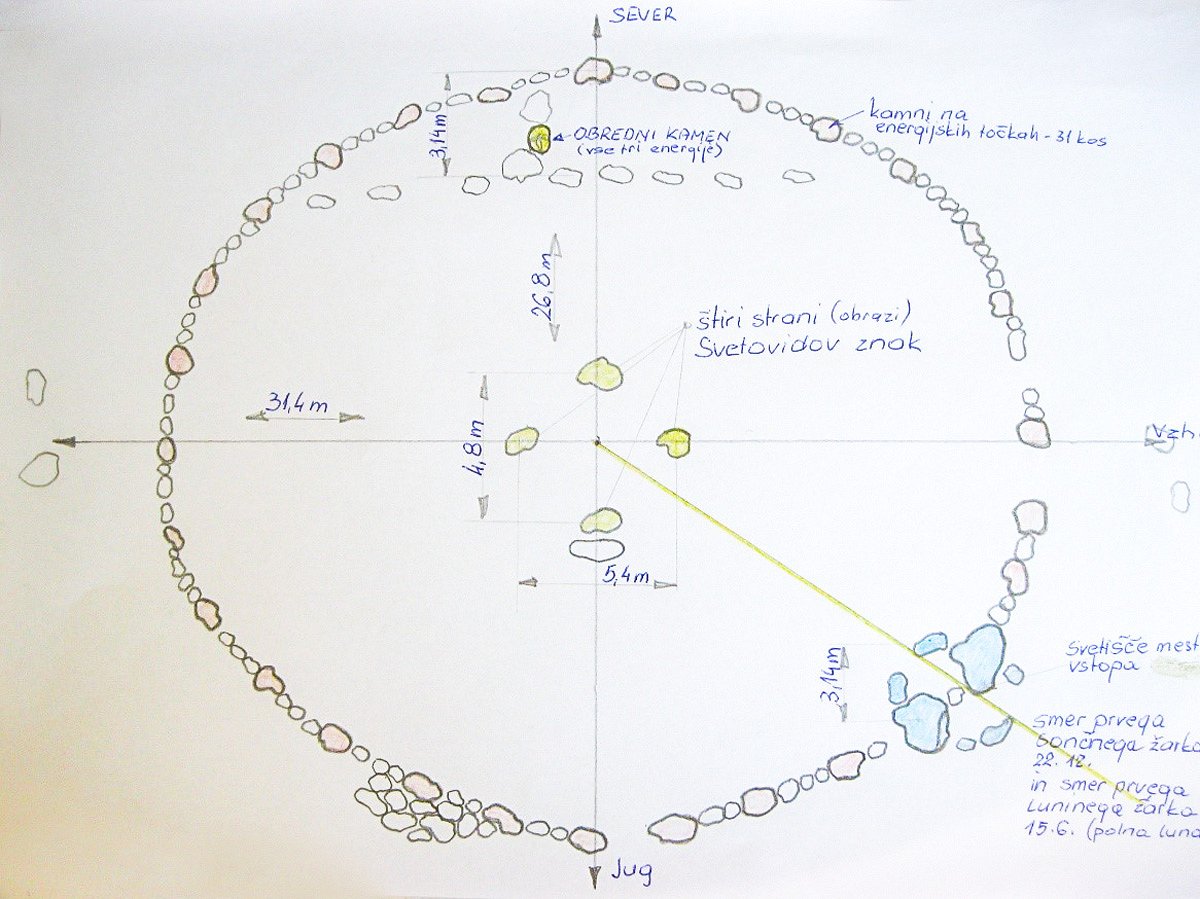 SEVER
kamni na
energijskih točkah - 31 kos
3,14 m
OBREDNI KAMEN
(vse tri energije)
26,8 m
štiri strani (obrazi)
Svetovidov znak
31,4 m
4,8 m
Vzh
5,4 m
3,14 m
Svetišče mest
vstopa
smer prvega
sončnega žarka
22. 12.
in smer prvega
Luninega žarka
15. 6. (polna luna
Jug